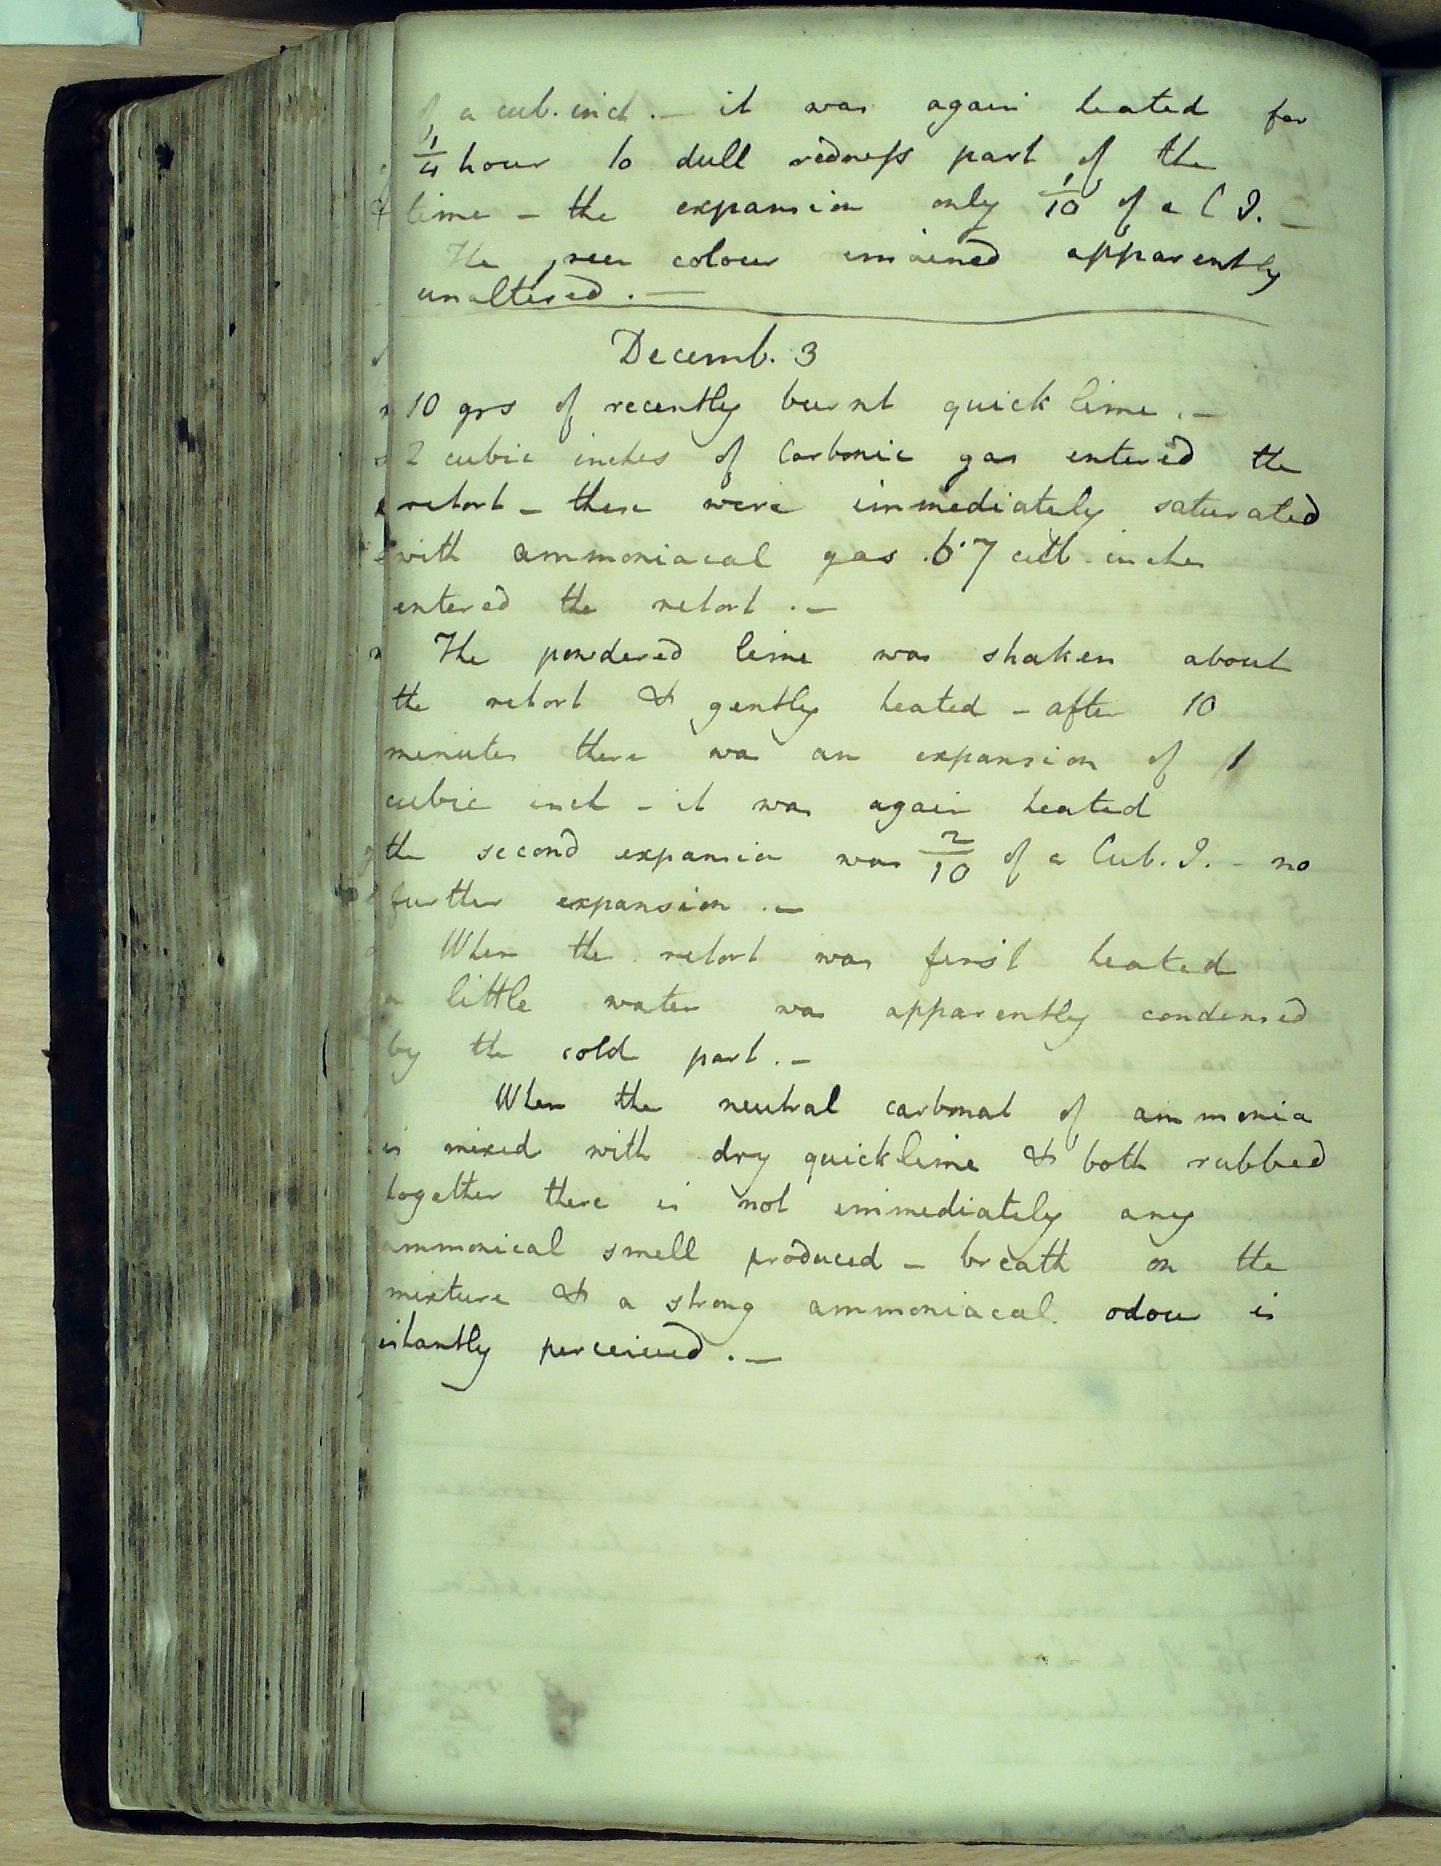 of a cub. inch . — it was again heated for
1/4 hour to dull redness part of the
time – the expansion only 1/10 of a C I. –
The green colour remained apparently
unaltered . —
Decemb. 3
10 grs of recently burnt quick lime . –
2 cubic inches of Carbonic gas entered the
retort – these were immediately saturated
with ammoniacal gas . 6·7 cub inches
entered the retort . –
The powdered lime was shaken about
the retort & gently heated – after 10
minutes there was an expansion of 1
cubic inch – it was again heated
the second expansion was 2/10 of a Cub. I. – no
further expansion . –
When the retort was first heated
a little water was apparently condensed
by the cold part . –
When the neutral carbonat of ammonia
is mixed with dry quicklime & both rubbed
together there is not immediately any
ammonical smell produced – breath on the
mixture & a strong ammoniacal odour is
istantly perceived . —